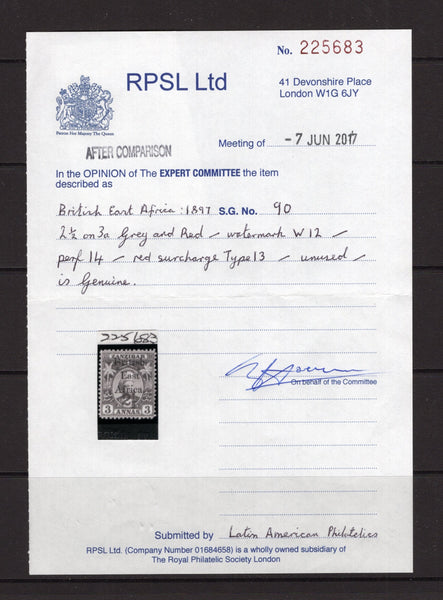 No. 225683
RPSL Ltd
Patron Her Majesty The Queen
41 Devonshire Place
London W1G 6JY
Meeting of -7 JUN 2017
AFTER COMPARISON
In the OPINION of The EXPERT COMMITTEE the item
described as
British East Africa : 1897 S.G. No. 90
2½ on 3a Grey and Red – watermark W12 –
perf 14 – red surcharge Type 13 – unused –
is Genuine.
225683
ZANZIBAR
British
East
Africa
3 ANNAS 3
On behalf of the Committee
Submitted by Latin American Philatelics
RPSL Ltd. (Company Number 01684658) is a wholly owned subsidiary of
The Royal Philatelic Society London